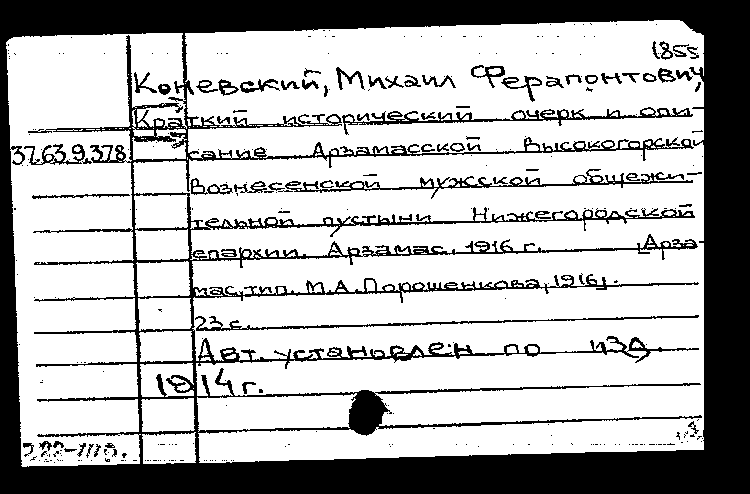 (1855
Коневский, Михаил Ферапонтович,
Краткий исторический очерк и опи-
37.63.9.378. сание Арзамасской Высокогорской
Вознесенской мужской общежи-
тельной пустыни Нижегородской
епархии. Арзамас, 1916 г. [Арза-
мас, тип. М.А. Порошенкова, 1916].
23 с.
Авт. установлен по изд.
1914 г.